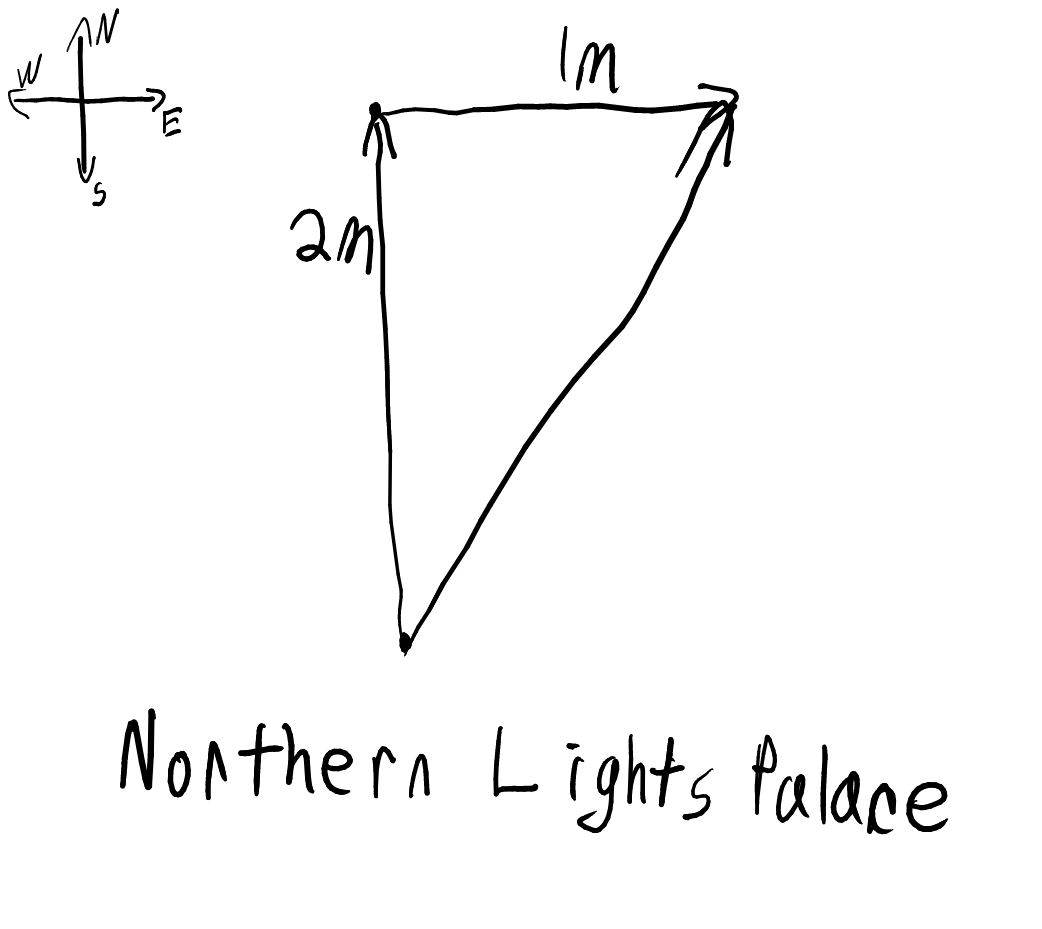 N
W
E
S
1m
2m
Northern Lights Palace